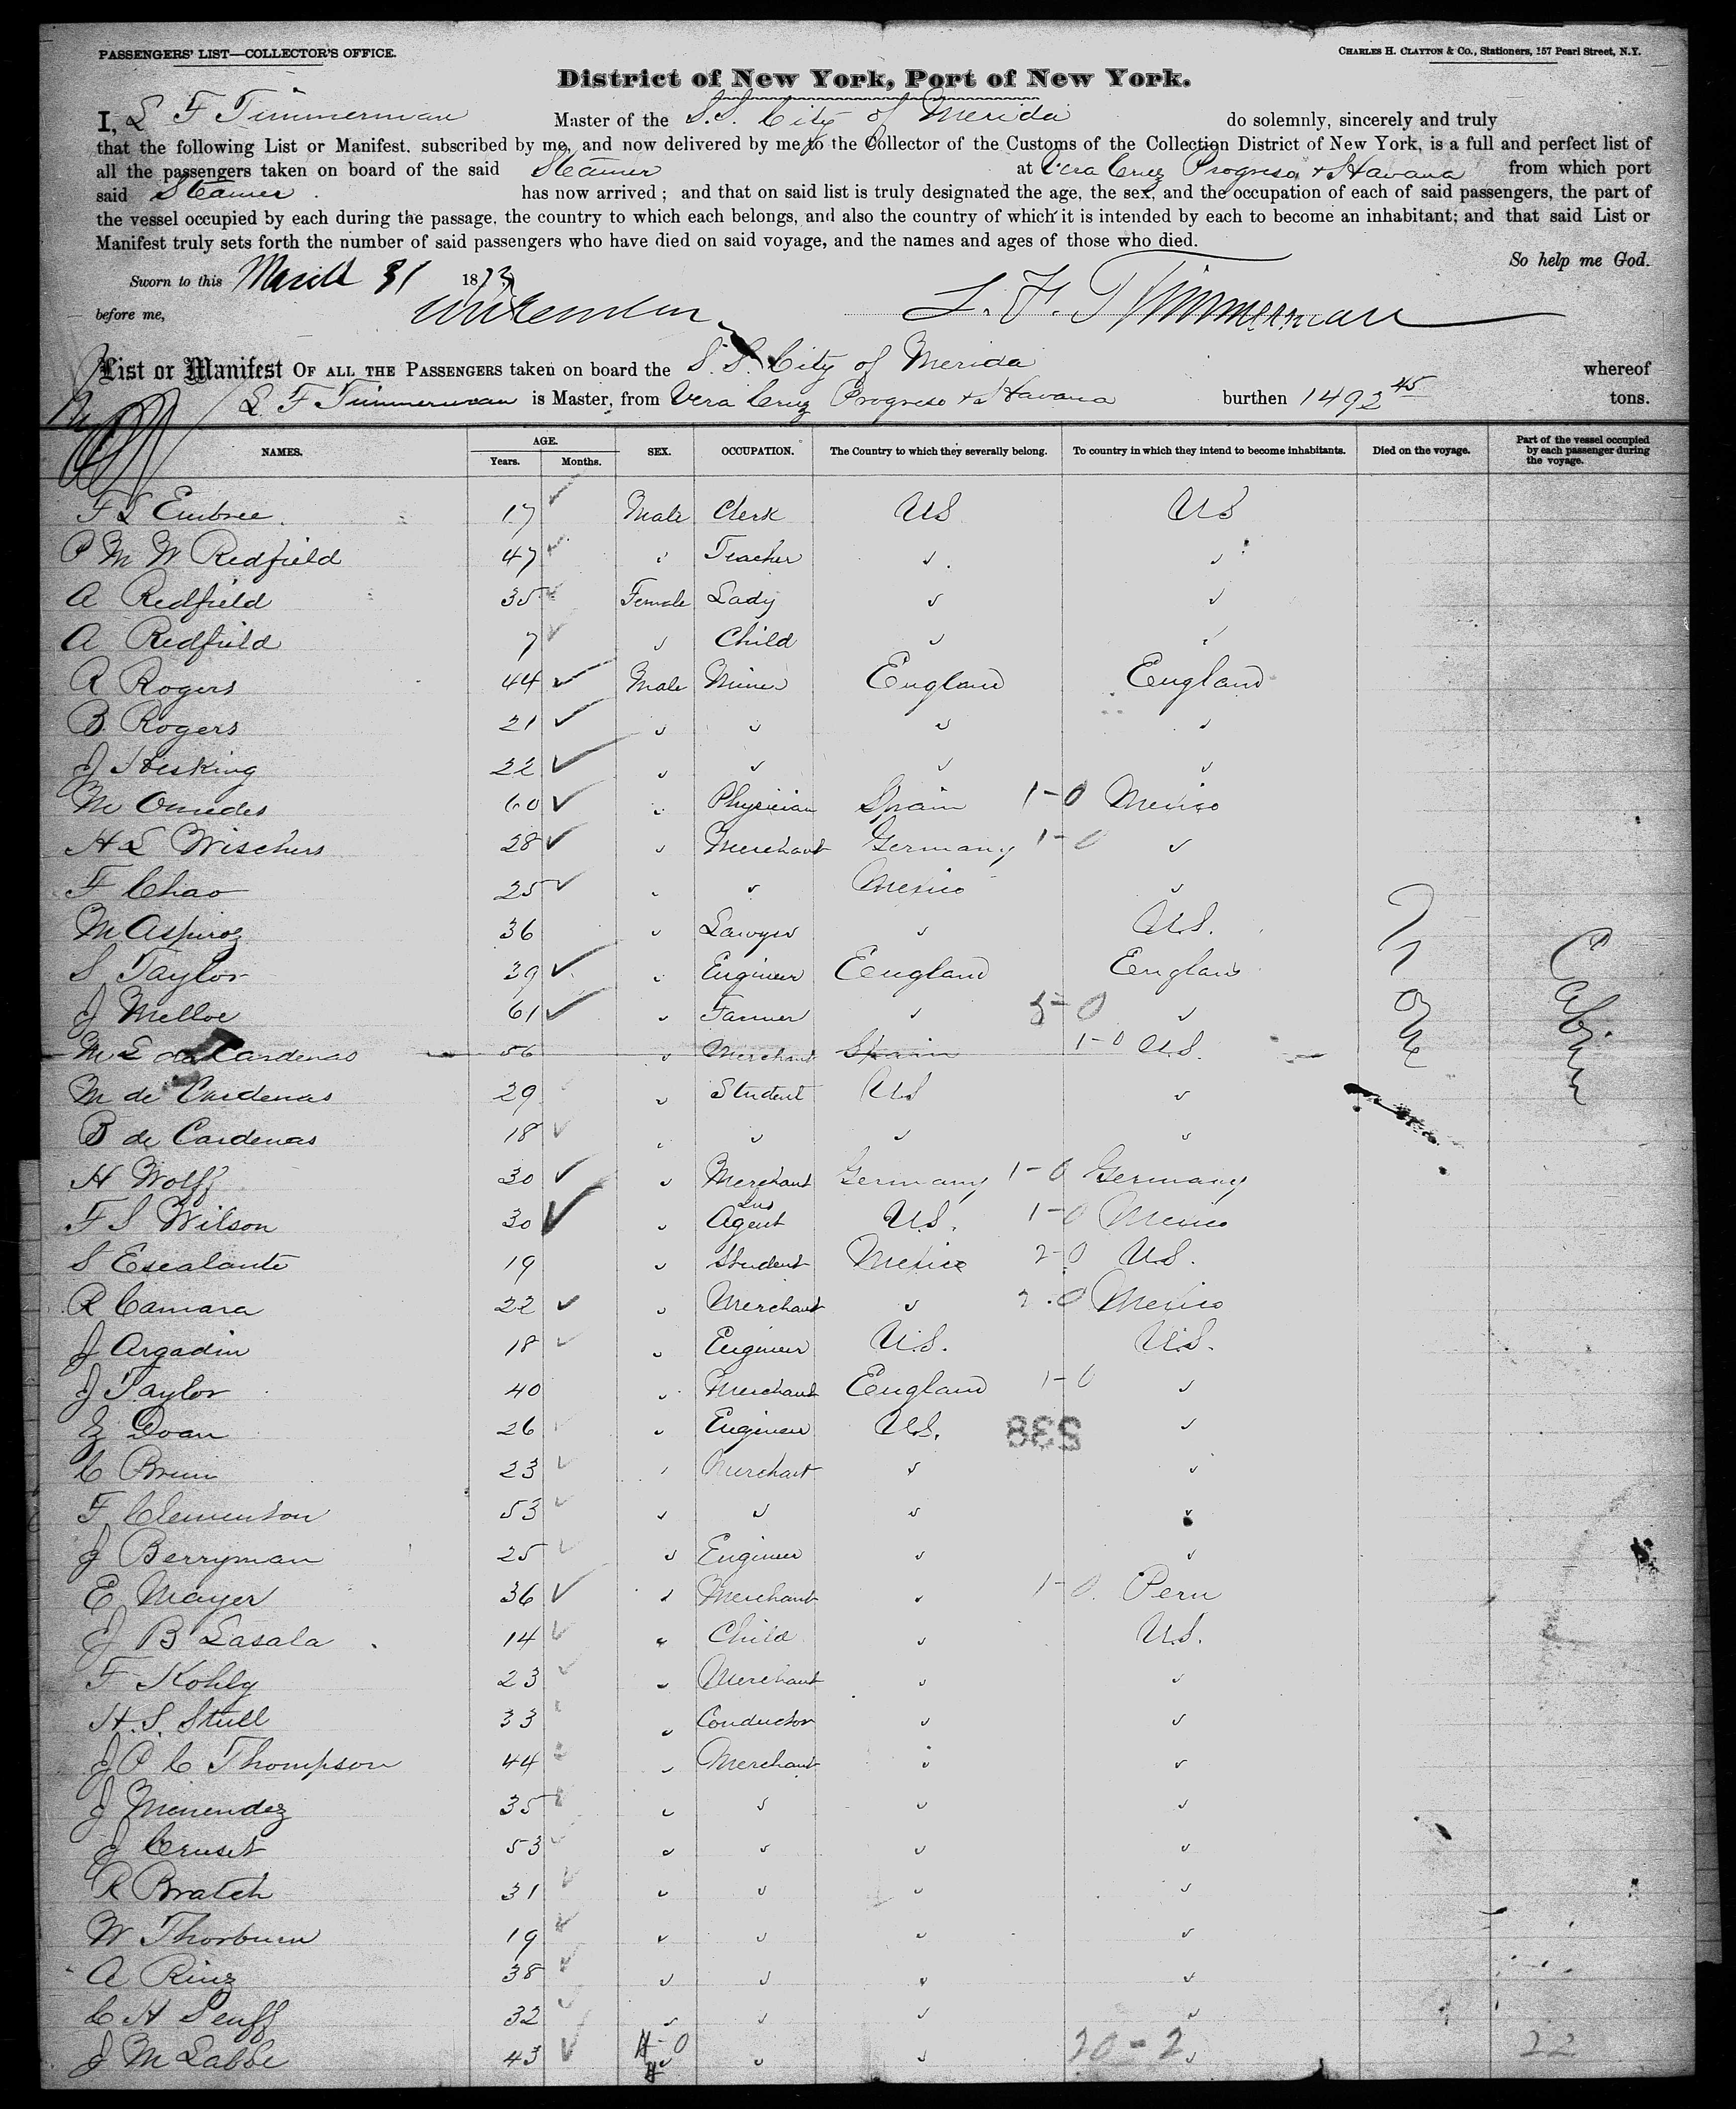 PASSENGERS' LIST—COLLECTOR'S OFFICE.
CHARLES H. CLAYTON & Co., Stationers, 157 Pearl Street, N.Y.
District of New York, Port of New York.
I, L F Timmerman Master of the S.S. City of Merida do solemnly, sincerely and truly
that the following List or Manifest. subscribed by me, and now delivered by me to the Collector of the Customs of the Collection District of New York, is a full and perfect list of
all the passengers taken on board of the said Steamer at Vera Cruz Progreso & Havana from which port
said Steamer has now arrived; and that on said list is truly designated the age, the sex, and the occupation of each of said passengers, the part of
the vessel occupied by each during the passage, the country to which each belongs, and also the country of which it is intended by each to become an inhabitant; and that said List or
Manifest truly sets forth the number of said passengers who have died on said voyage, and the names and ages of those who died.
So help me God.
Sworn to this March 31 1873
before me, L. F. Timmerman
List or Manifest OF ALL THE PASSENGERS taken on board the S.S. City of Merida whereof
L F Timmerman is Master, from Vera Cruz Progreso & Havana burthen 1492 45 tons.
NAMES. AGE. Years. Months. SEX. OCCUPATION. The Country to which they severally belong. To country in which they intend to become inhabitants. Died on the voyage. Part of the vessel occupied by each passenger during the voyage.
F L Embree 17 Male Clerk US US
P M W Redfield 47 " Teacher " "
A Redfield 35 Female Lady " "
A Redfield 7 " Child " "
R Rogers 44 Male Miner England England
B Rogers 21 " " " "
J Hosking 22 " " " "
M Omedes 60 " Physician Spain 1-0 Mexico
H L Wischers 28 " Merchant Germany 1-0 "
F Chao 25 " " Mexico "
M Aspiroz 36 " Lawyer " U.S.
S Taylor 39 " Engineer England England
J Melloe 61 " Farmer " 3-0 "
M L de Cardenas 56 " Merchant Spain 1-0 U.S.
M de Cardenas 29 " Student US "
B de Cardenas 18 " " " "
H Wolff 30 " Merchant Germany 1-0 Germany
F S Wilson 30 " Ins Agent U.S. 1-0 Mexico
S Escalante 19 " Student Mexico 2-0 U.S.
R Camara 22 " Merchant " 2-0 Mexico
J Argadin 18 " Engineer U.S. U.S.
J Taylor 40 " Merchant England 1-0 "
Z Doan 26 " Engineer U.S. 538 "
C Brun 23 " Merchant " "
F Clementson 53 " " " "
J Berryman 25 " Engineer " "
E Mayer 36 " Merchant " 1-0 Peru
J B Lasala 14 " Child " U.S.
F Kohly 23 " Merchant " "
H. S. Stull 33 " Conductor " "
J P C Thompson 44 " Merchant " "
J Menendez 35 " " " "
J Cruset 53 " " " "
R Bratch 31 " " " "
W Thorburn 19 " " " "
A Ruiz 38 " " " "
C H Senff 32 " " " "
J M Labbe 43 " " " 20-2 " 22
None
Cabin